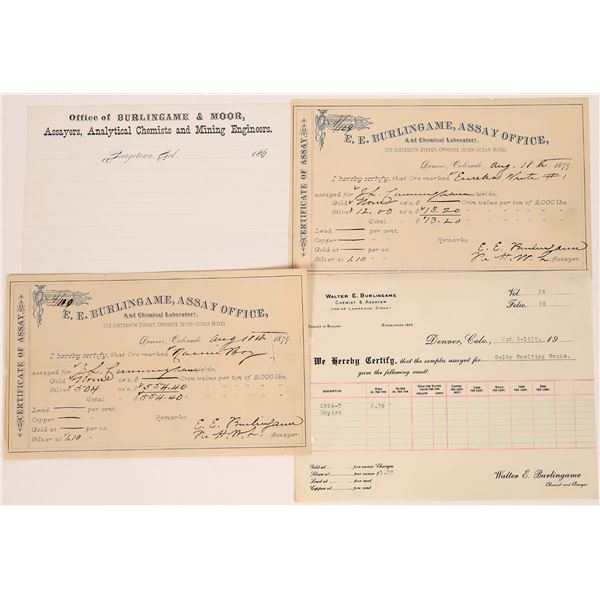 Office of BURLINGAME & MOOR,
Assayers, Analytical Chemists and Mining Engineers.
Georgetown, Col. 186
CERTIFICATE OF ASSAY.
E. E. BURLINGAME, ASSAY OFFICE,
And Chemical Laboratory.
319 SIXTEENTH STREET, OPPOSITE INTER-OCEAN HOTEL.
Denver, Colorado, Aug 18th 1879.
I hereby certify, that Ore marked Eureka White #1
assayed for J.L. Cunningham yields:
Gold None oz's, $ Coin value per ton of 2,000 lbs.
Silver 12.40 oz's, $13.20 " " " " "
Total $13.20 " " " " "
Lead per cent. Remarks
Copper " "
Gold at E. E. Burlingame
Silver at 1.10 Assayer.
CERTIFICATE OF ASSAY.
E. E. BURLINGAME, ASSAY OFFICE,
And Chemical Laboratory.
319 SIXTEENTH STREET, OPPOSITE INTER-OCEAN HOTEL.
Denver, Colorado, Aug 18th 1879.
I hereby certify, that Ore marked
assayed for J.L. Cunningham yields:
Gold None oz's, $ Coin value per ton of 2,000 lbs.
Silver 504 oz's, $554.40 " " " " "
Total $554.40 " " " " "
Lead per cent. Remarks
Copper " "
Gold at E. E. Burlingame
Silver at 1.10 Assayer.
WALTER E. BURLINGAME
CHEMIST & ASSAYER
LAWRENCE STREET
Vol.
Folio
DEALER IN BULLION ESTABLISHED
Denver, Colo., 19
We Hereby Certify, that the samples assayed for Selby Smelting Works.
gave the following result:
DESCRIPTION
Umpire
Gold at per ounce Charges
Silver at per ounce
Lead at per cent
Copper at per cent
Walter E. Burlingame
Chemist and Assayer